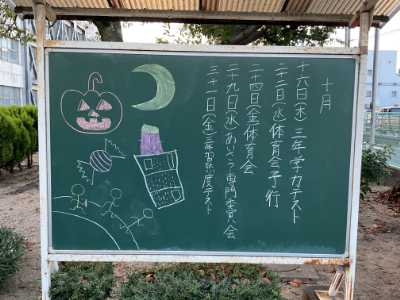 十月
十六日(木)三年学力テスト
二十二日(水)体育会予行
二十四日(金)体育会
二十九日(水)あいさつ専門委員会
三十一日(金)三年習熟度テスト